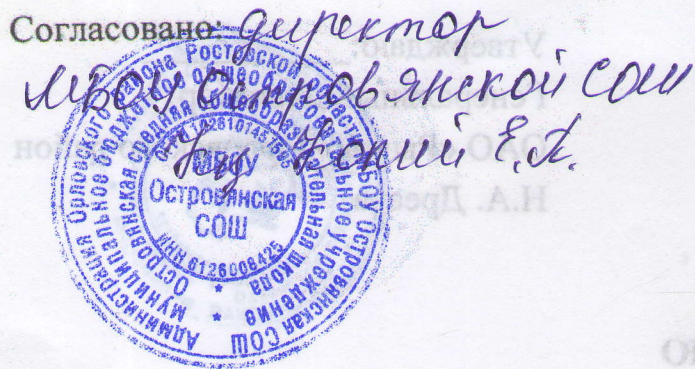 Согласовано: директор
МБОУ Островянской СОШ
Копий Е.П.
Администрация Орловского района Ростовской области МБОУ Островянская СОШ
муниципальное бюджетное общеобразовательное учреждение
Островянская средняя общеобразовательная школа
МБОУ
Островянская
СОШ
ИНН 6126008425